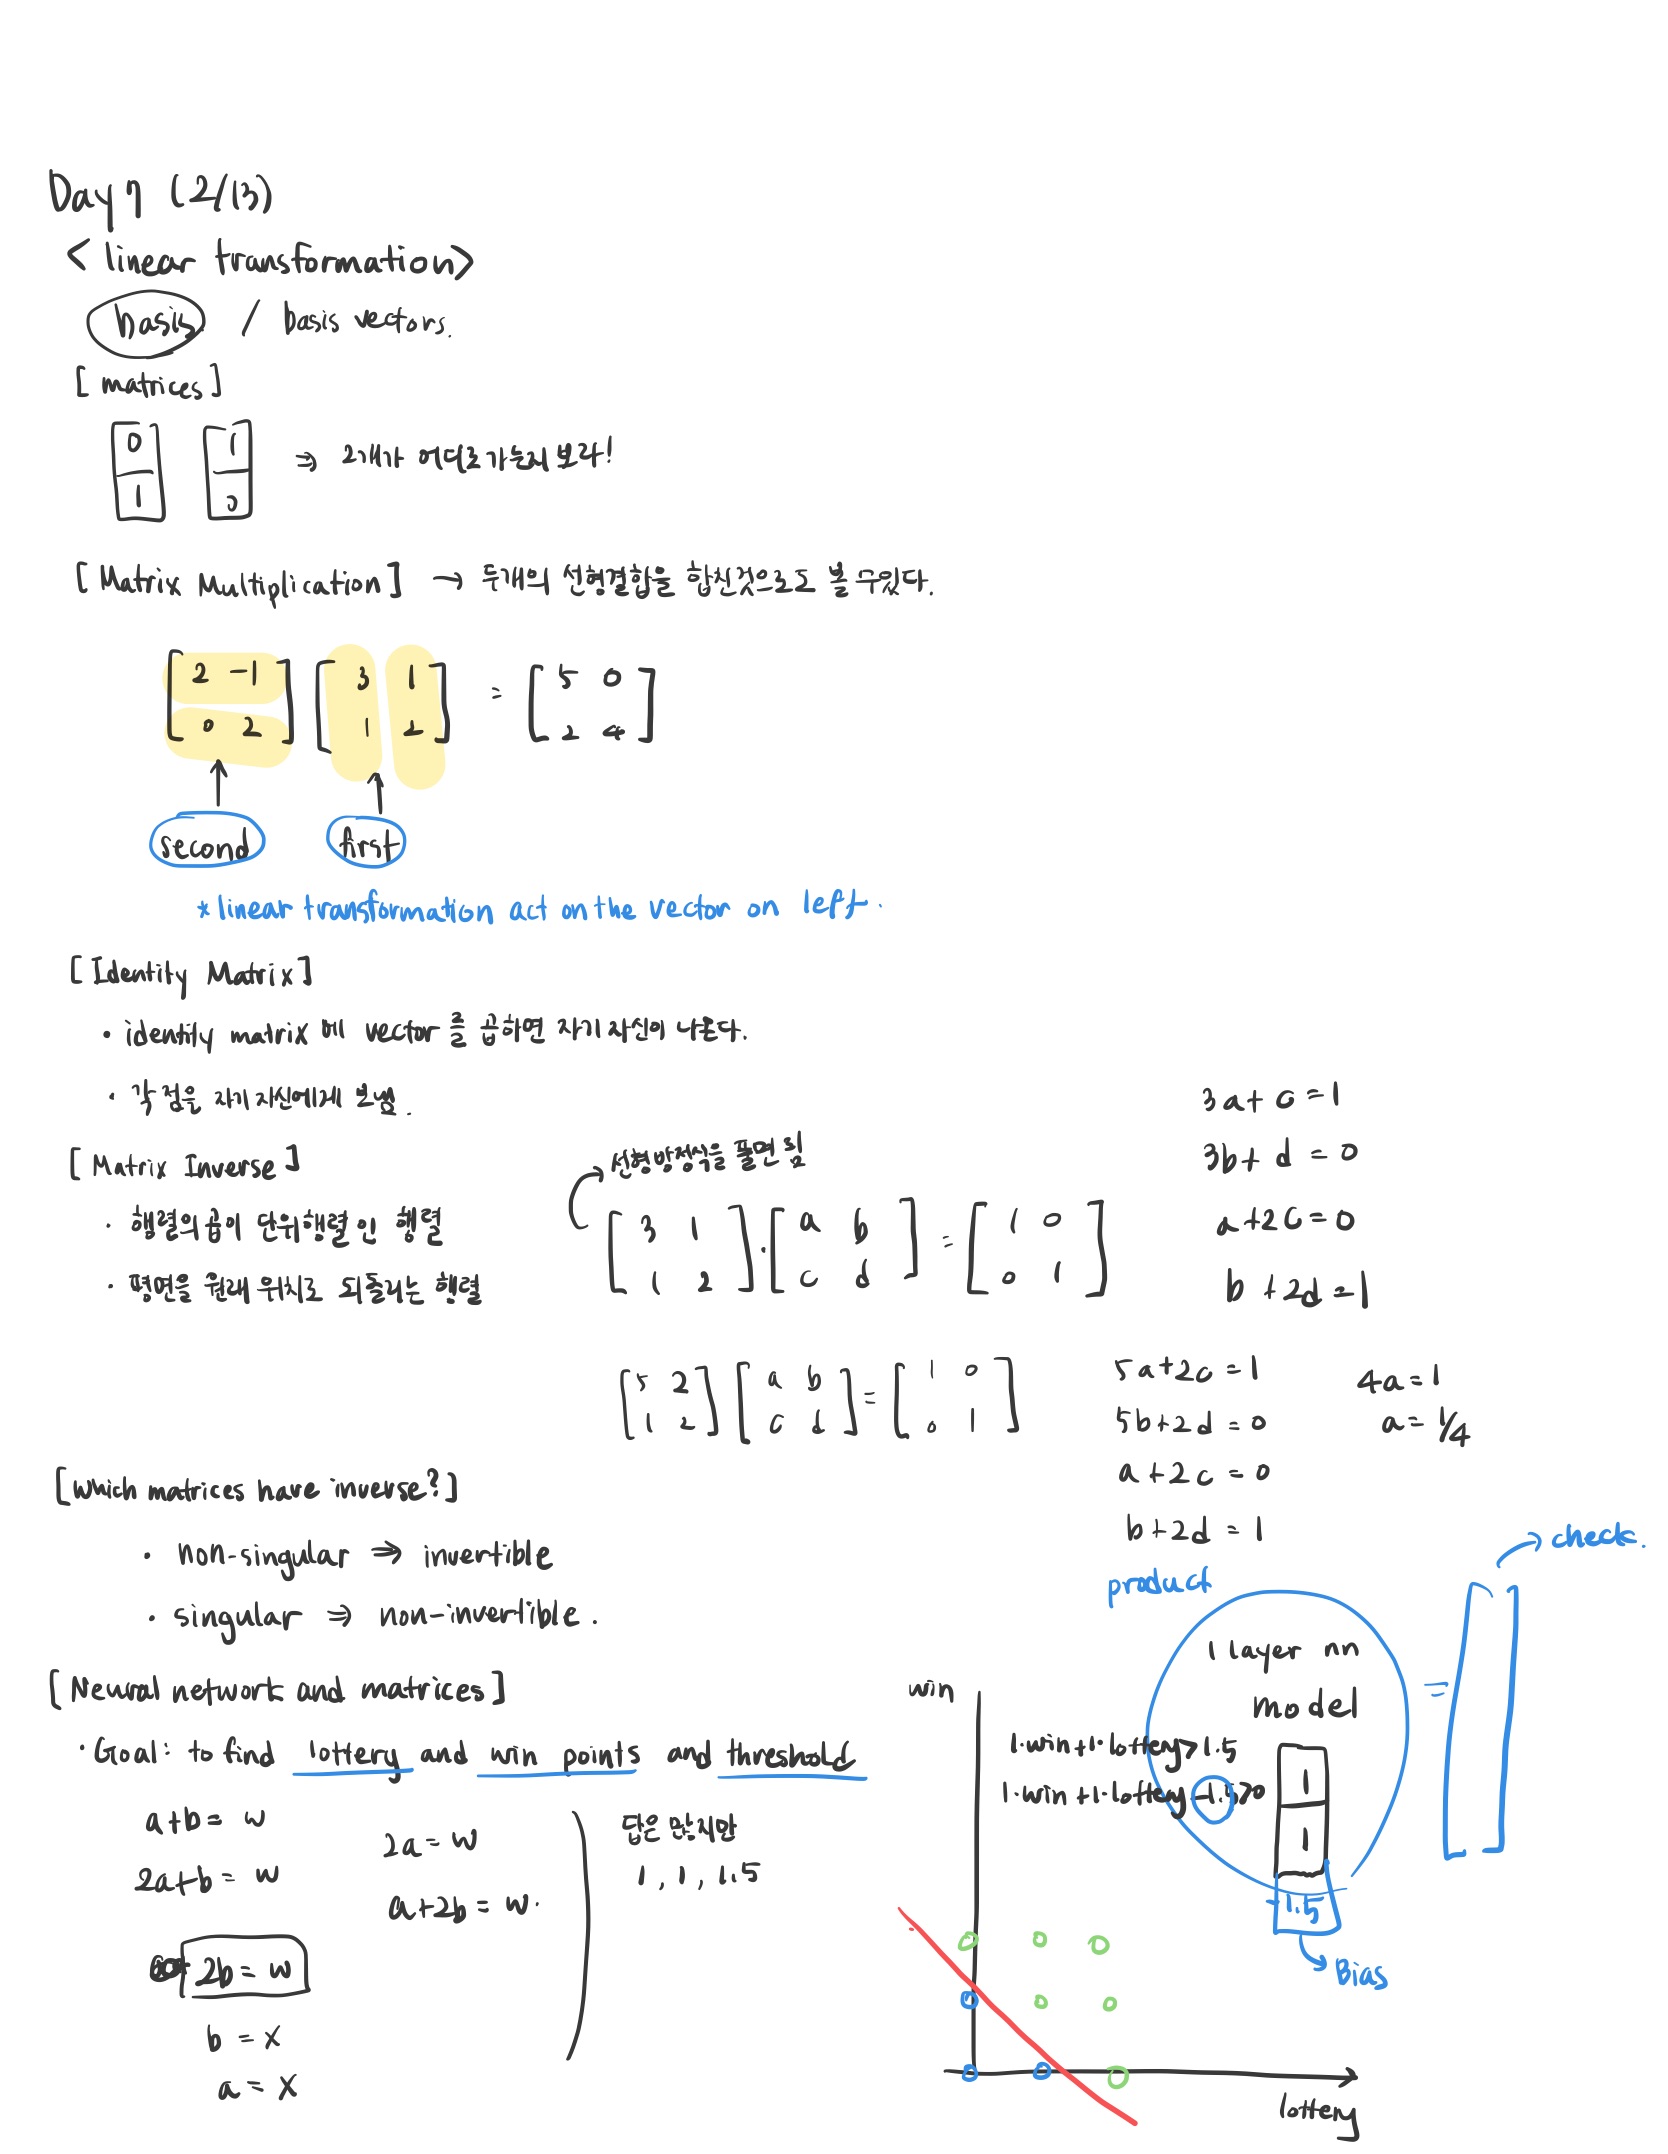 Day 7 (2/13)
< linear transformation>
basis / basis vectors.
[ matrices]
0 1
1 0
⇒ 2개가 어디로 가는지 보라!
[ Matrix Multiplication] → 두개의 선형결합을 합친것으로도 볼 수있다.
[2 -1] [3 1] = [5 0]
[0 2] [1 2] [2 4]
second first
*linear transformation act on the vector on left.
[Identity Matrix]
· identity matrix 에 vector 를 곱하면 자기 자신이 나온다.
· 각 점을 자기 자신에게 보냄.
[ Matrix Inverse]
· 행렬의 곱이 단위행렬 인 행렬
· 평면을 원래 위치로 되돌리는 행렬
선형방정식을 풀면 됨
[3 1] · [a b] = [1 0]
[1 2] [c d] [0 1]
3a+c=1
3b+d=0
a+2c=0
b+2d=1
[5 2] [a b] = [1 0]
[1 2] [c d] [0 1]
5a+2c=1
5b+2d=0
a+2c=0
b+2d=1
4a=1
a=1/4
[Which matrices have inverse?]
· non-singular ⇒ invertible
· singular ⇒ non-invertible.
[Neural network and matrices]
· Goal: to find lottery and win points and threshold
a+b=w
2a+b=w
2b=w
b=x
a=x
2a=w
a+2b=w.
답은 많지만
1, 1, 1.5
product
→ check.
1 layer nn
model
=
win
1·win+1·lottery>1.5
1·win+1·lottery-1.5>0
1
1
-1.5
Bias
lottery